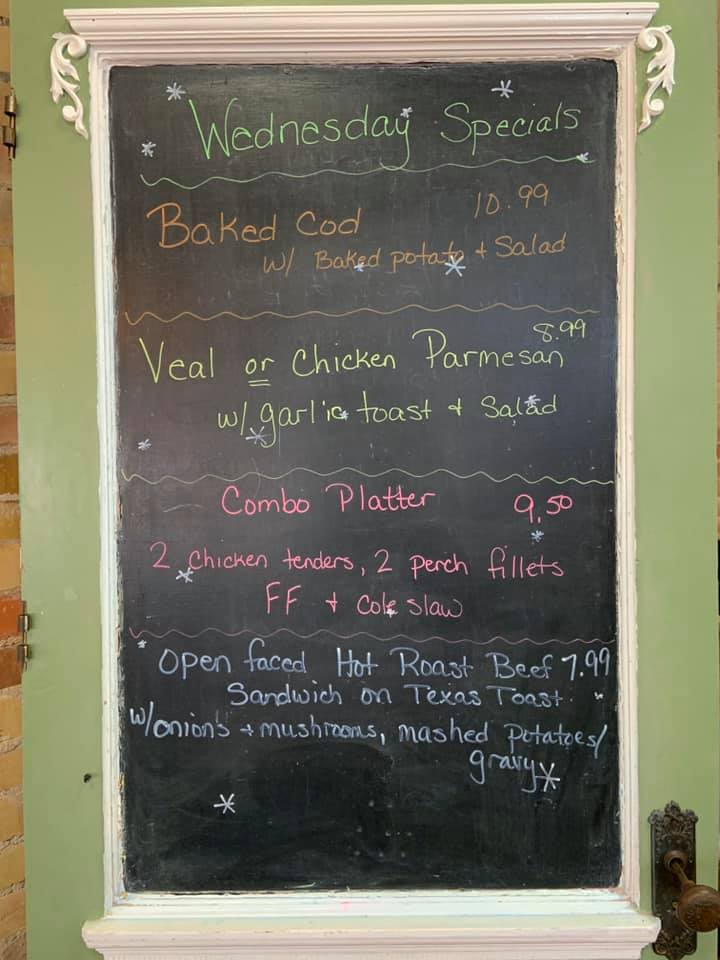 Wednesday Specials
Baked Cod 10.99
w/ Baked potato + Salad
Veal or Chicken Parmesan 8.99
w/ garlic toast + Salad
Combo Platter 9.50
2 Chicken tenders, 2 perch fillets
FF + Cole slaw
Open faced Hot Roast Beef 7.99
Sandwich on Texas Toast
w/onion's + mushrooms, mashed potatoes/
gravy